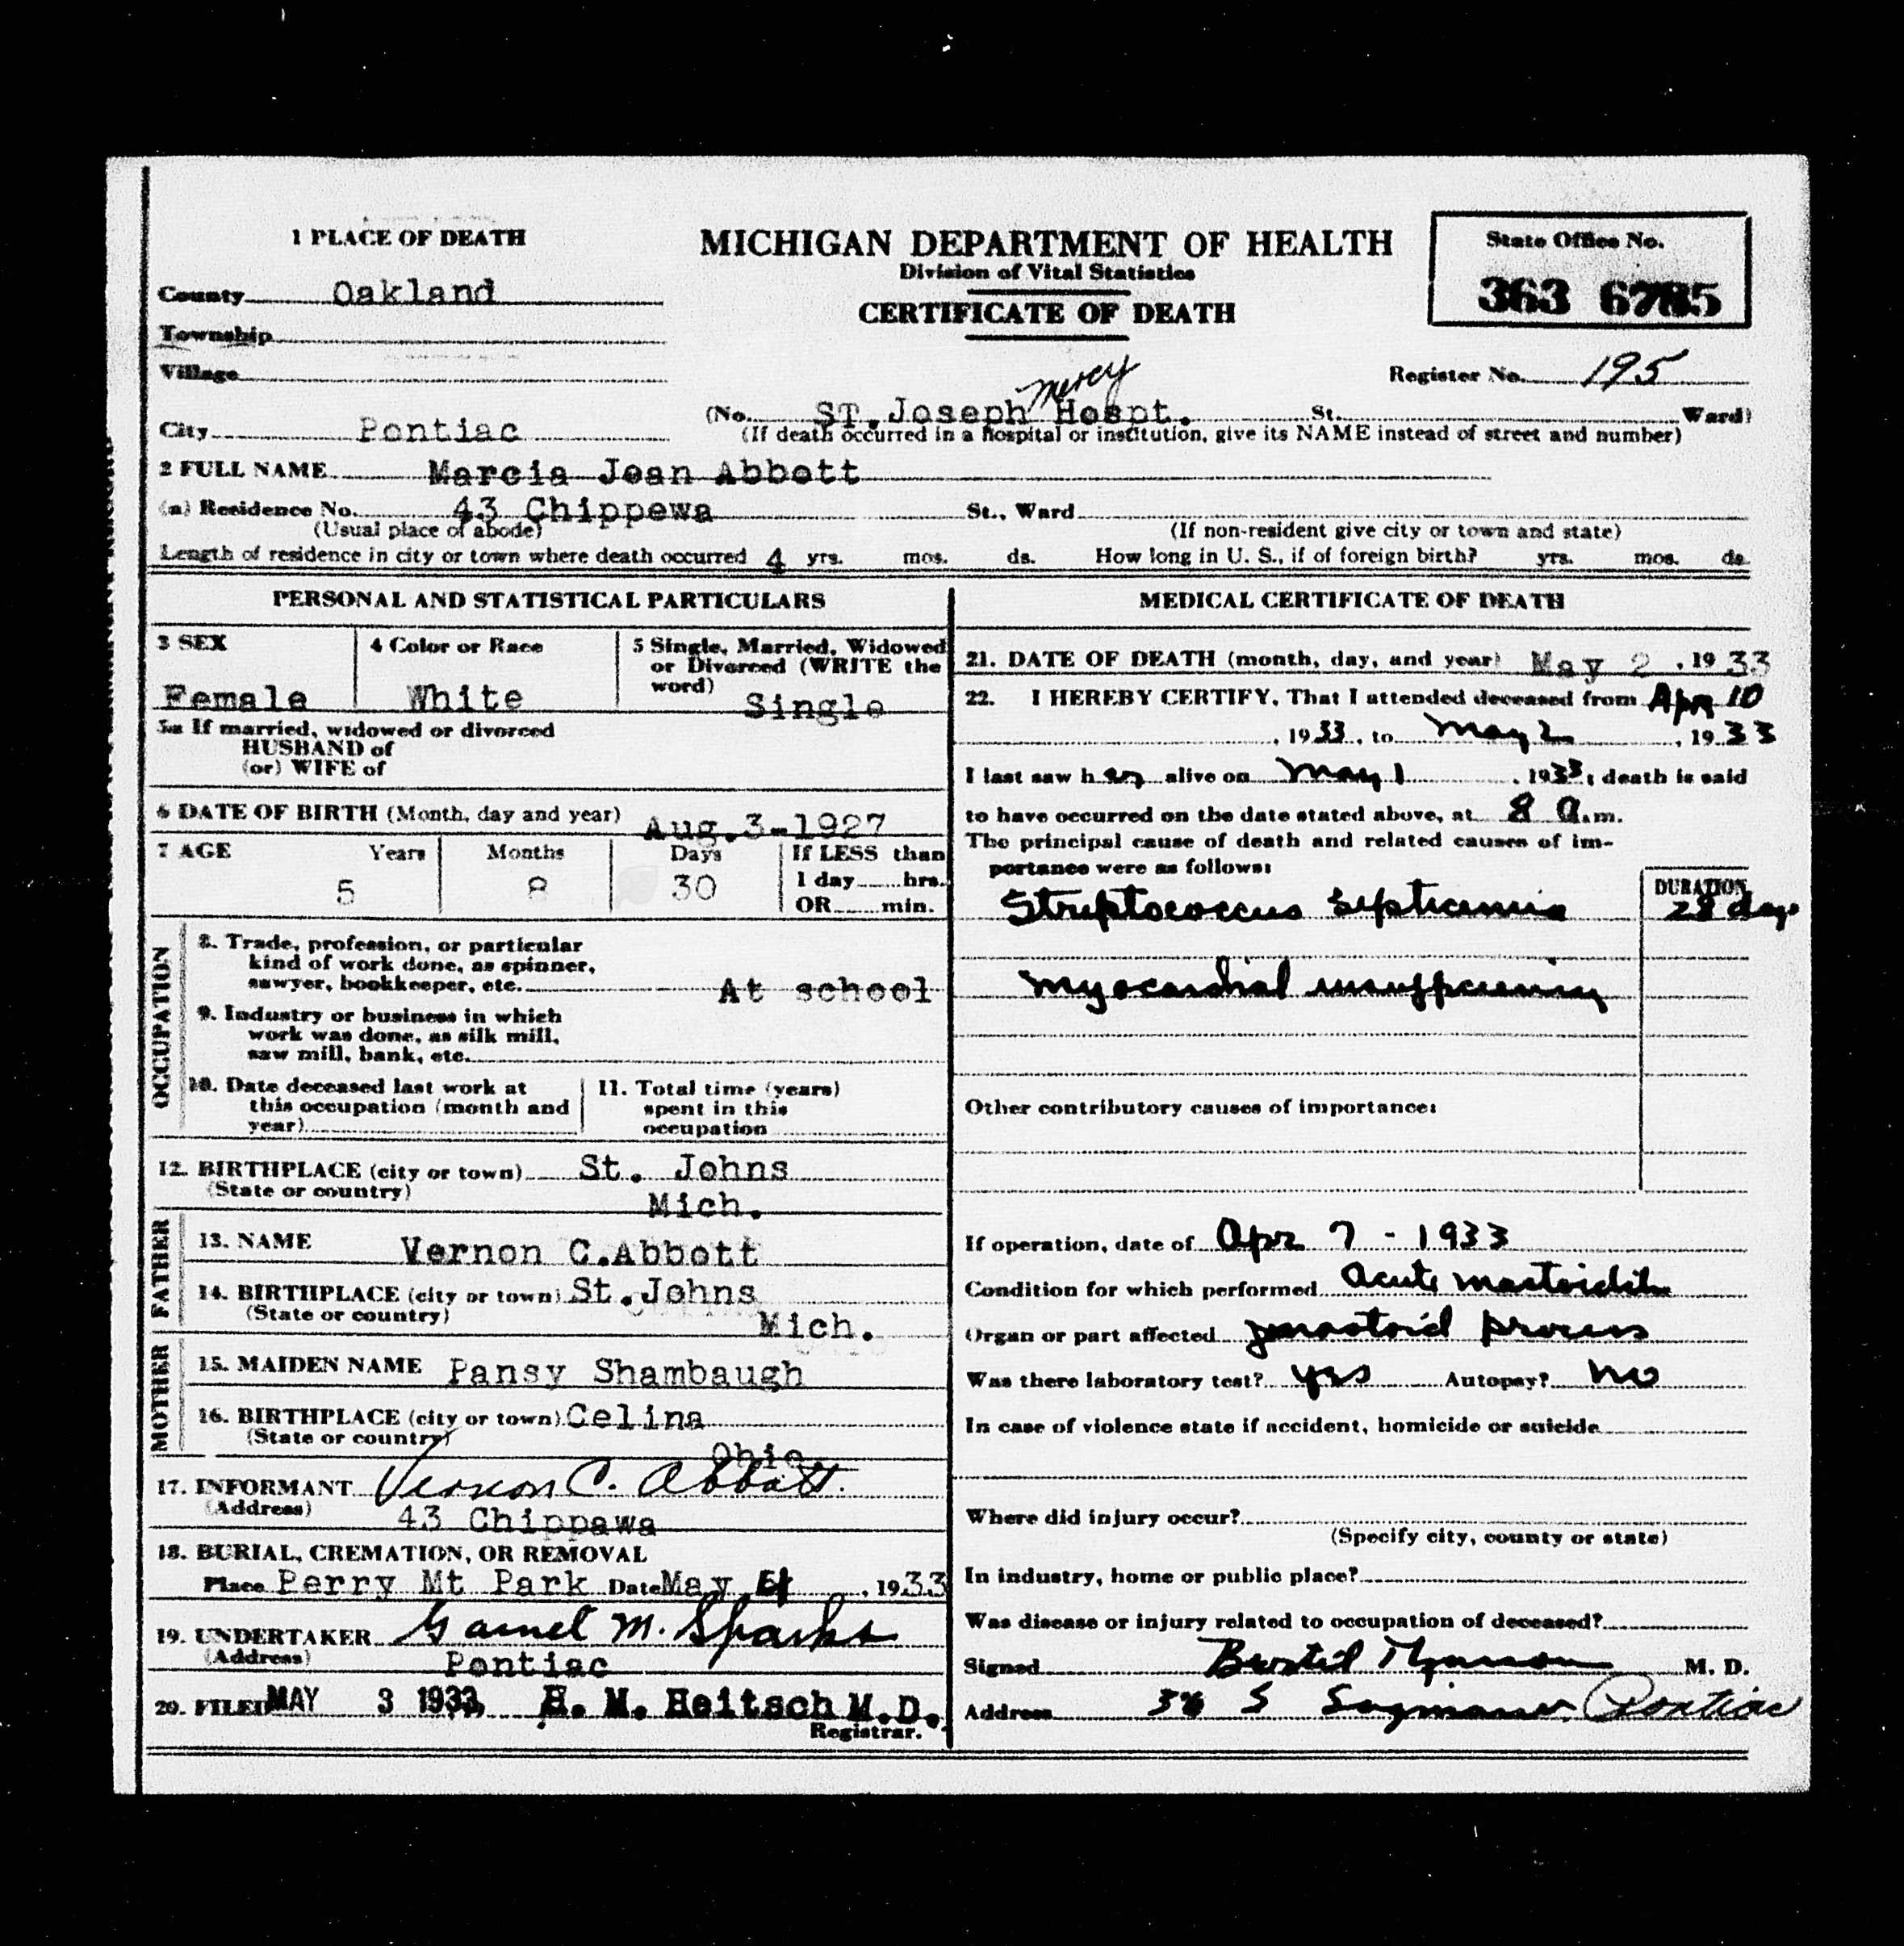 1 PLACE OF DEATH
MICHIGAN DEPARTMENT OF HEALTH
Division of Vital Statistics
CERTIFICATE OF DEATH
State Office No.
363
County Oakland
Township
Village
Register No. 195
City Pontiac
(No. ST. Joseph Mercy Hospt. St. Ward)
(If death occurred in a hospital or institution, give its NAME instead of street and number)
2 FULL NAME Marcia Jean Abbott
(a) Residence No. 43 Chippewa St., Ward
(Usual place of abode) (If non-resident give city or town and state)
Length of residence in city or town where death occurred 4 yrs. mos. ds. How long in U. S., if of foreign birth? yrs. mos. ds.
PERSONAL AND STATISTICAL PARTICULARS
3 SEX
Female
4 Color or Race
White
5 Single, Married, Widowed
or Divorced (WRITE the
word)
Single
5a If married, widowed or divorced
HUSBAND of
(or) WIFE of
6 DATE OF BIRTH (Month, day and year) Aug.3-1927
7 AGE Years Months Days If LESS than
1 day hrs.
5 8 30
OR min.
OCCUPATION
8. Trade, profession, or particular
kind of work done, as spinner,
sawyer, bookkeeper, etc. At school
9. Industry or business in which
work was done, as silk mill,
saw mill, bank, etc.
10. Date deceased last work at
this occupation (month and
year)
11. Total time (years)
spent in this
occupation
12. BIRTHPLACE (city or town) St. Johns
(State or country) Mich.
FATHER
13. NAME Vernon C.Abbott
14. BIRTHPLACE (city or town) St. Johns
(State or country) Mich.
MOTHER
15. MAIDEN NAME Pansy Shambaugh
16. BIRTHPLACE (city or town) Celina
(State or country) Ohio
17. INFORMANT Vernon C. Abbott.
(Address) 43 Chippawa
18. BURIAL, CREMATION, OR REMOVAL
Place Perry Mt Park Date May 4, 1933
19. UNDERTAKER M. Sparks
(Address) Pontiac
20. FILED MAY 3 1933, H. M. Heitsch M.D.
Registrar.
MEDICAL CERTIFICATE OF DEATH
21. DATE OF DEATH (month, day, and year) May 2, 1933
22. I HEREBY CERTIFY, That I attended deceased from Apr 10
, 1933, to May 2, 1933
I last saw her alive on May 1, 1933; death is said
to have occurred on the date stated above, at 8 a.m.
The principal cause of death and related causes of im-
portance were as follows:
DURATION
Streptococcus Septicemia 28 days
Myocardial insufficiency
Other contributory causes of importance:
If operation, date of Apr 7 - 1933
Condition for which performed Acute mastoiditis
Organ or part affected mastoid process
Was there laboratory test? yes Autopsy? no
In case of violence state if accident, homicide or suicide
Where did injury occur?
(Specify city, county or state)
In industry, home or public place?
Was disease or injury related to occupation of deceased?
Signed M. D.
Address S Saginaw Pontiac